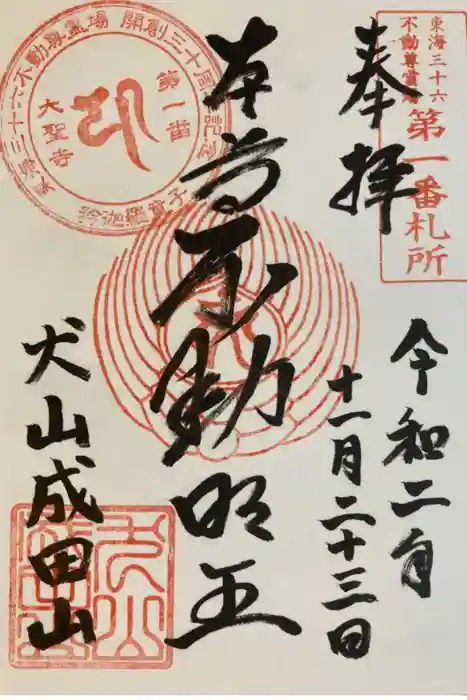 東海三十六
不動尊霊場
第一番札所
奉拝
令和二年
十一月二十三日
本尊不動明王
東海三十六不動尊霊場 開創三十周年記念
第一番
大聖寺
矜迦羅童子
犬山成田山